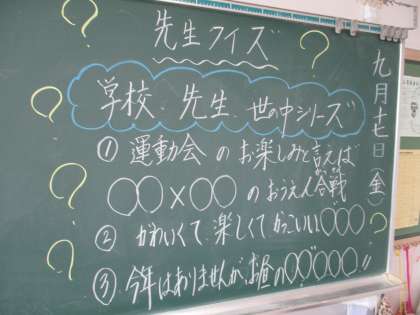 先生クイズ
学校、先生、世の中シリーズ
九月十七日(金)
① 運動会のお楽しみと言えば
○○×○○のおうえん合戦
② かわいくて、楽しくてかっこいい○○○
③ 今年はありませんが、お昼の○○○○○○!!
? ? ? ? ? ?